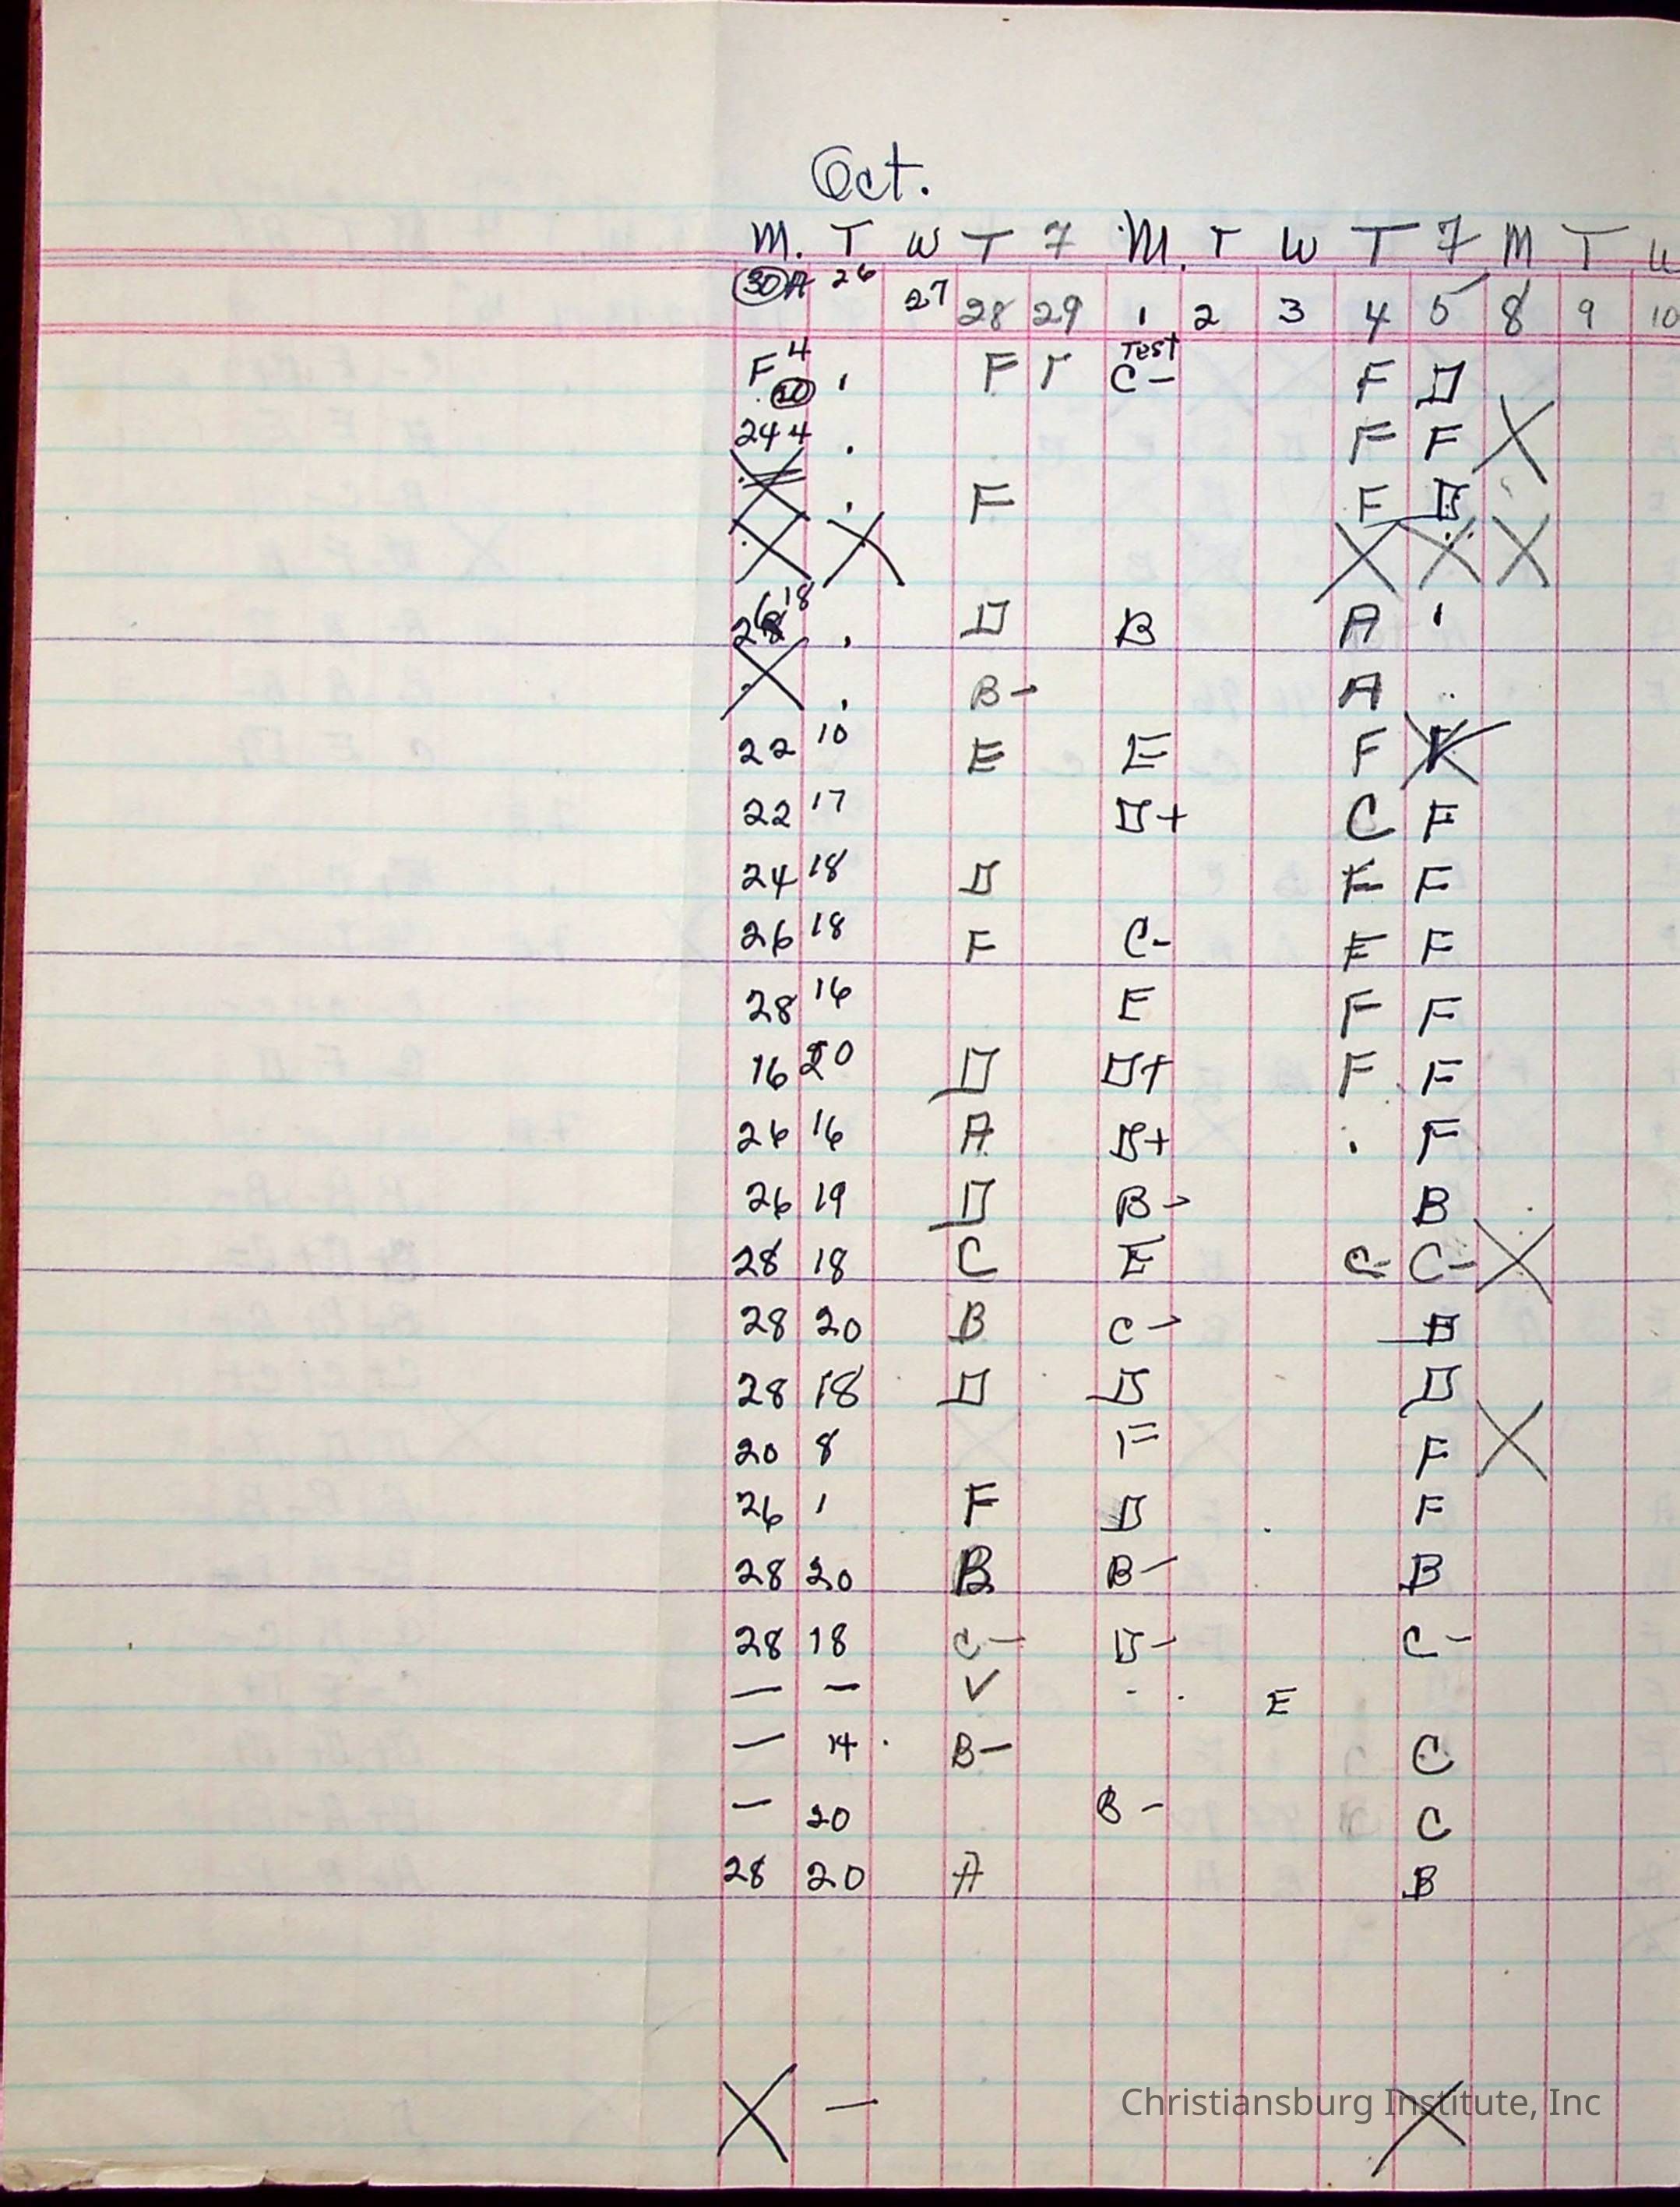 Oct.
M. T W T F M. T W T F M T W
30 A 26 27 28 29 1 2 3 4 5 8 9 10
F 4 F F Test C- F D
20
24 4 . F F X
X . F F D
X X X X X
26 18 . D B A
X . B- A
22 10 E E F
22 17 D+ C F
24 18 D F F
26 18 F C- E F
28 16 E F F
16 20 D D+ F F
26 16 A D+ . F
26 19 D B- B
28 18 C E C- C- X
28 20 B C- B
28 18 D D D
20 8 F F X
26 1 F D F
28 20 B B- B
28 18 C- D- C-
— — V E
— 14 B- C
— 20 B- C
28 20 A B
X — X
Christiansburg Institute, Inc